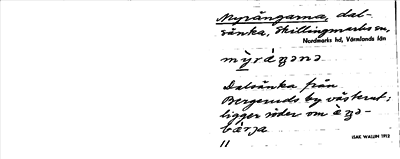 Myrängarna, dal-
sänka, Skillingmarks sn,
Nordmarks hd, Värmlands län
Dalsänka från
Bergeruds by västerut;
ligger söder om
11
ISAK WALLIN 1912